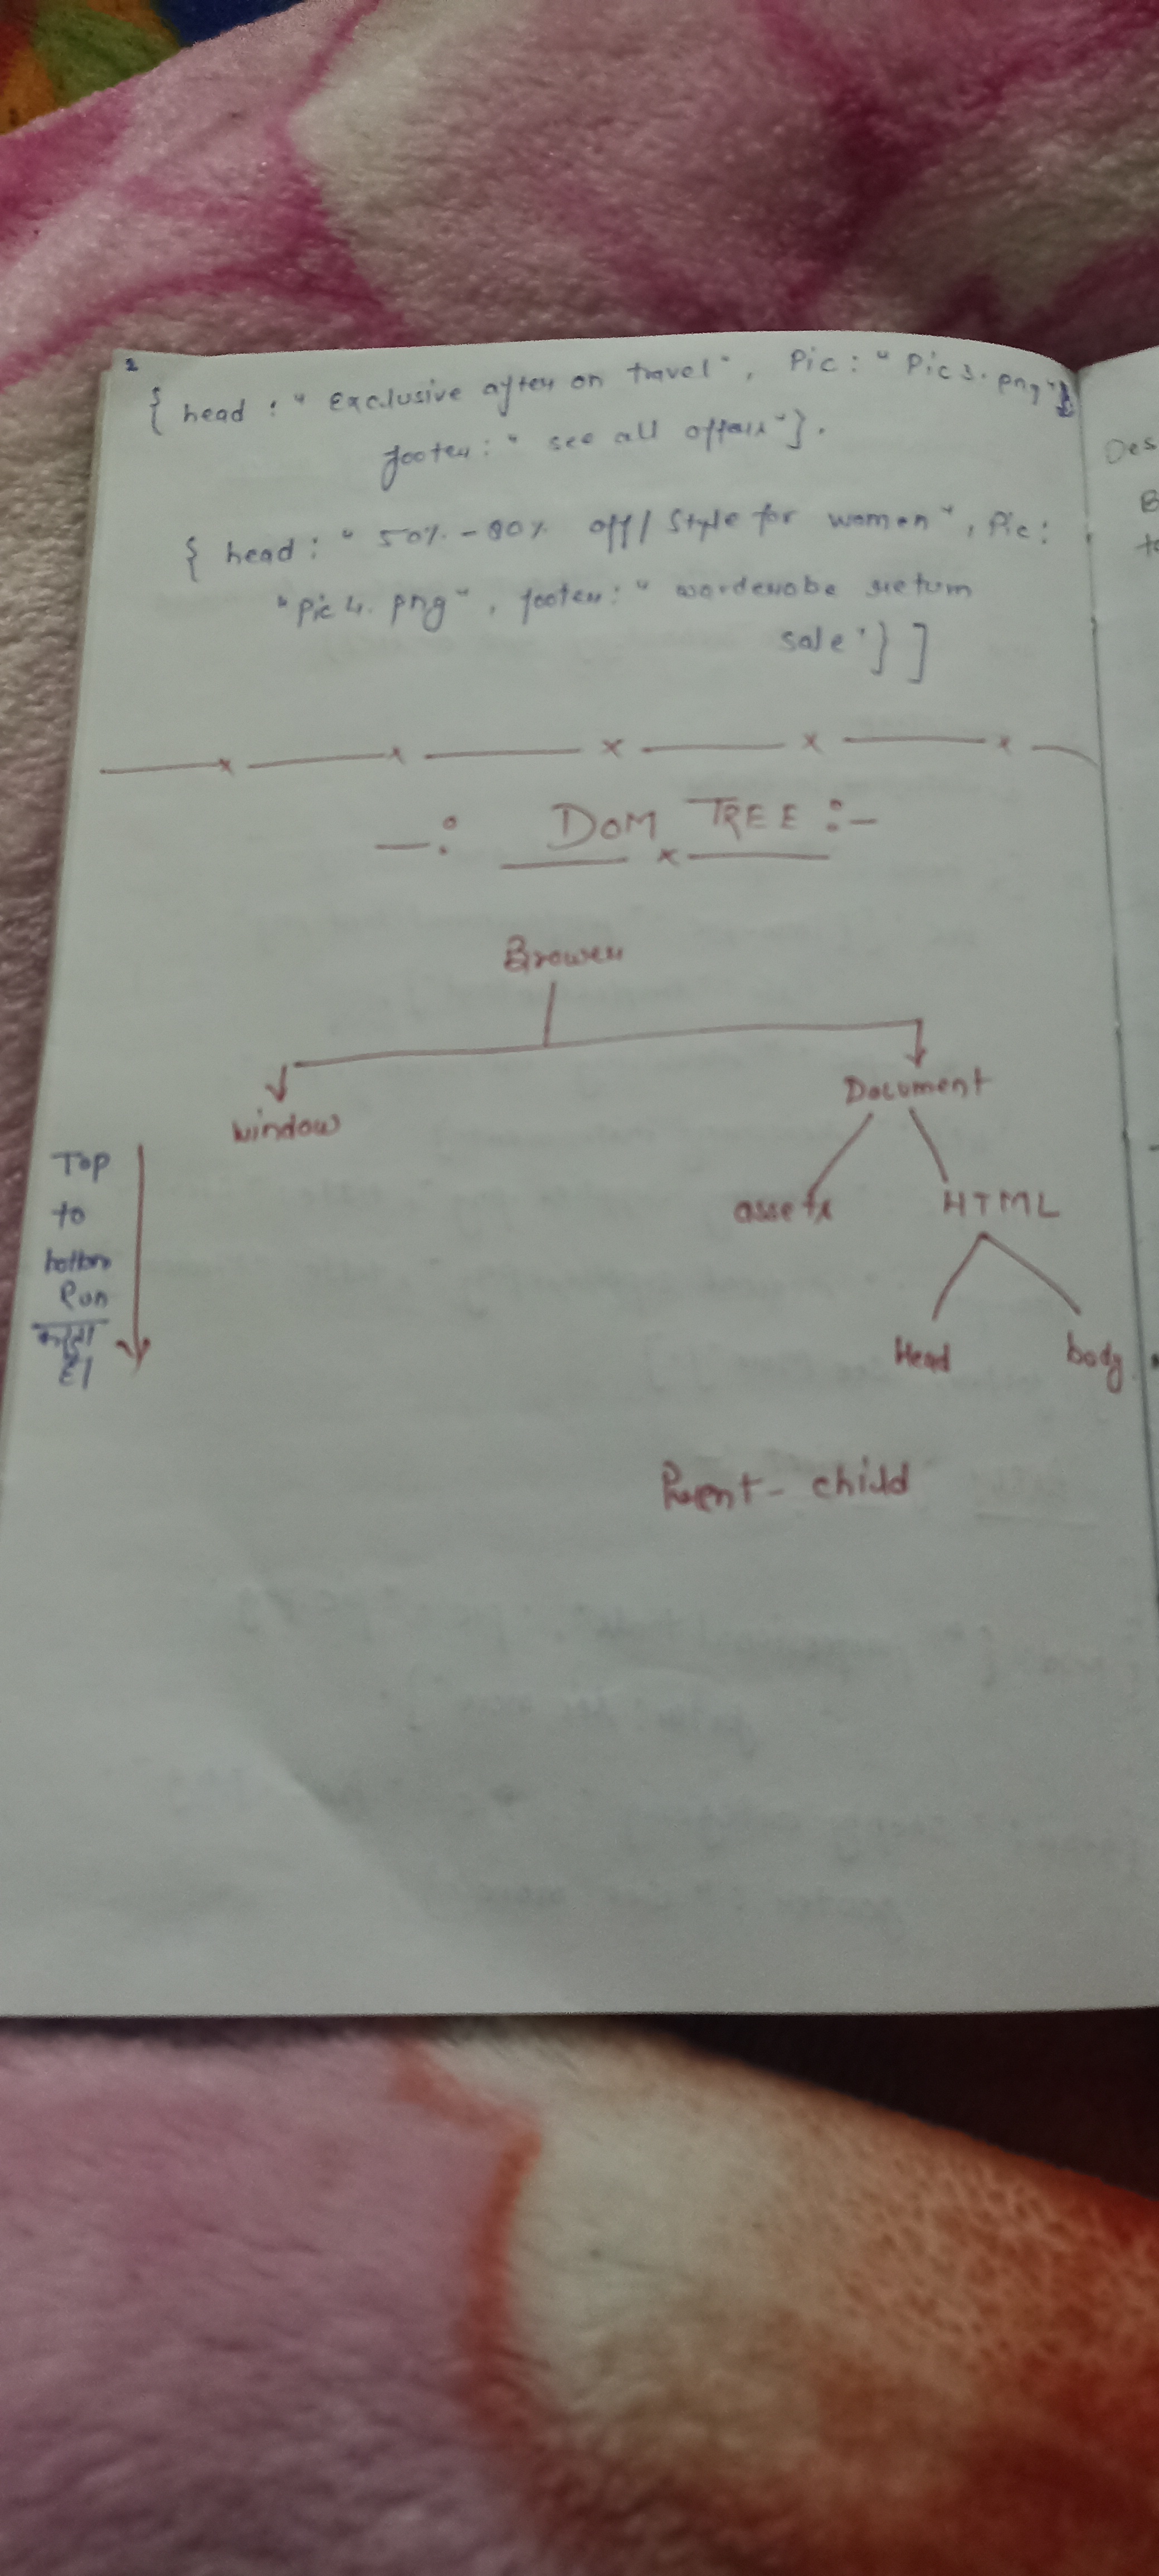 { head : " Exclusive after on travel", Pic : " Pic 3. png"}
footer : " see all offers"}.
{ head : " 50% - 80% off / Style for women ", Pic :
"Pic 4. png", footer : " warderobe return
sale"} ]
—: DOM TREE :—
Brower
window
Document
assets
HTML
Head
body
Top
to
bottom
Run
करता
है।
Parent - child
Des
B
to